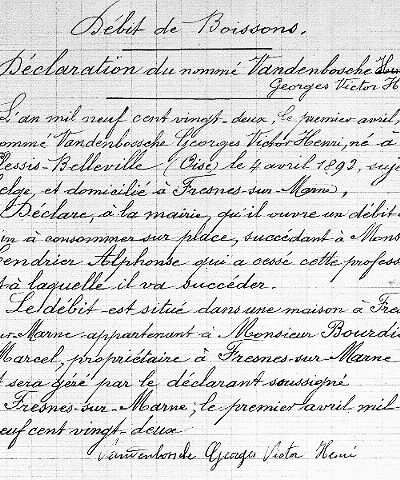 Débit de Boissons.
Déclaration du nommé Vandenbosche
Georges Victor H
L'an mil neuf cent vingt-deux, le premier avril,
ommé Vandenbossche Georges Victor Henri, né à
lessis-Belleville (Oise) le 4 avril 1892, suje
elge, et domicilié à Fresnes-sur-Marne,
Déclare, à la mairie, qu'il ouvre un débit d
in à consommer sur place, succédant à Mons
endrier Alphonse qui a cessé cette profess
t à laquelle il va succéder.
Le débit est situé dans une maison à Fre
ur-Marne appartenant à Monsieur Bourdi
Marcel, propriétaire à Fresnes-sur-Marne
t sera géré par le déclarant soussigné
Fresnes-sur-Marne, le premier avril mil
euf cent vingt-deux
Georges Victor Henri